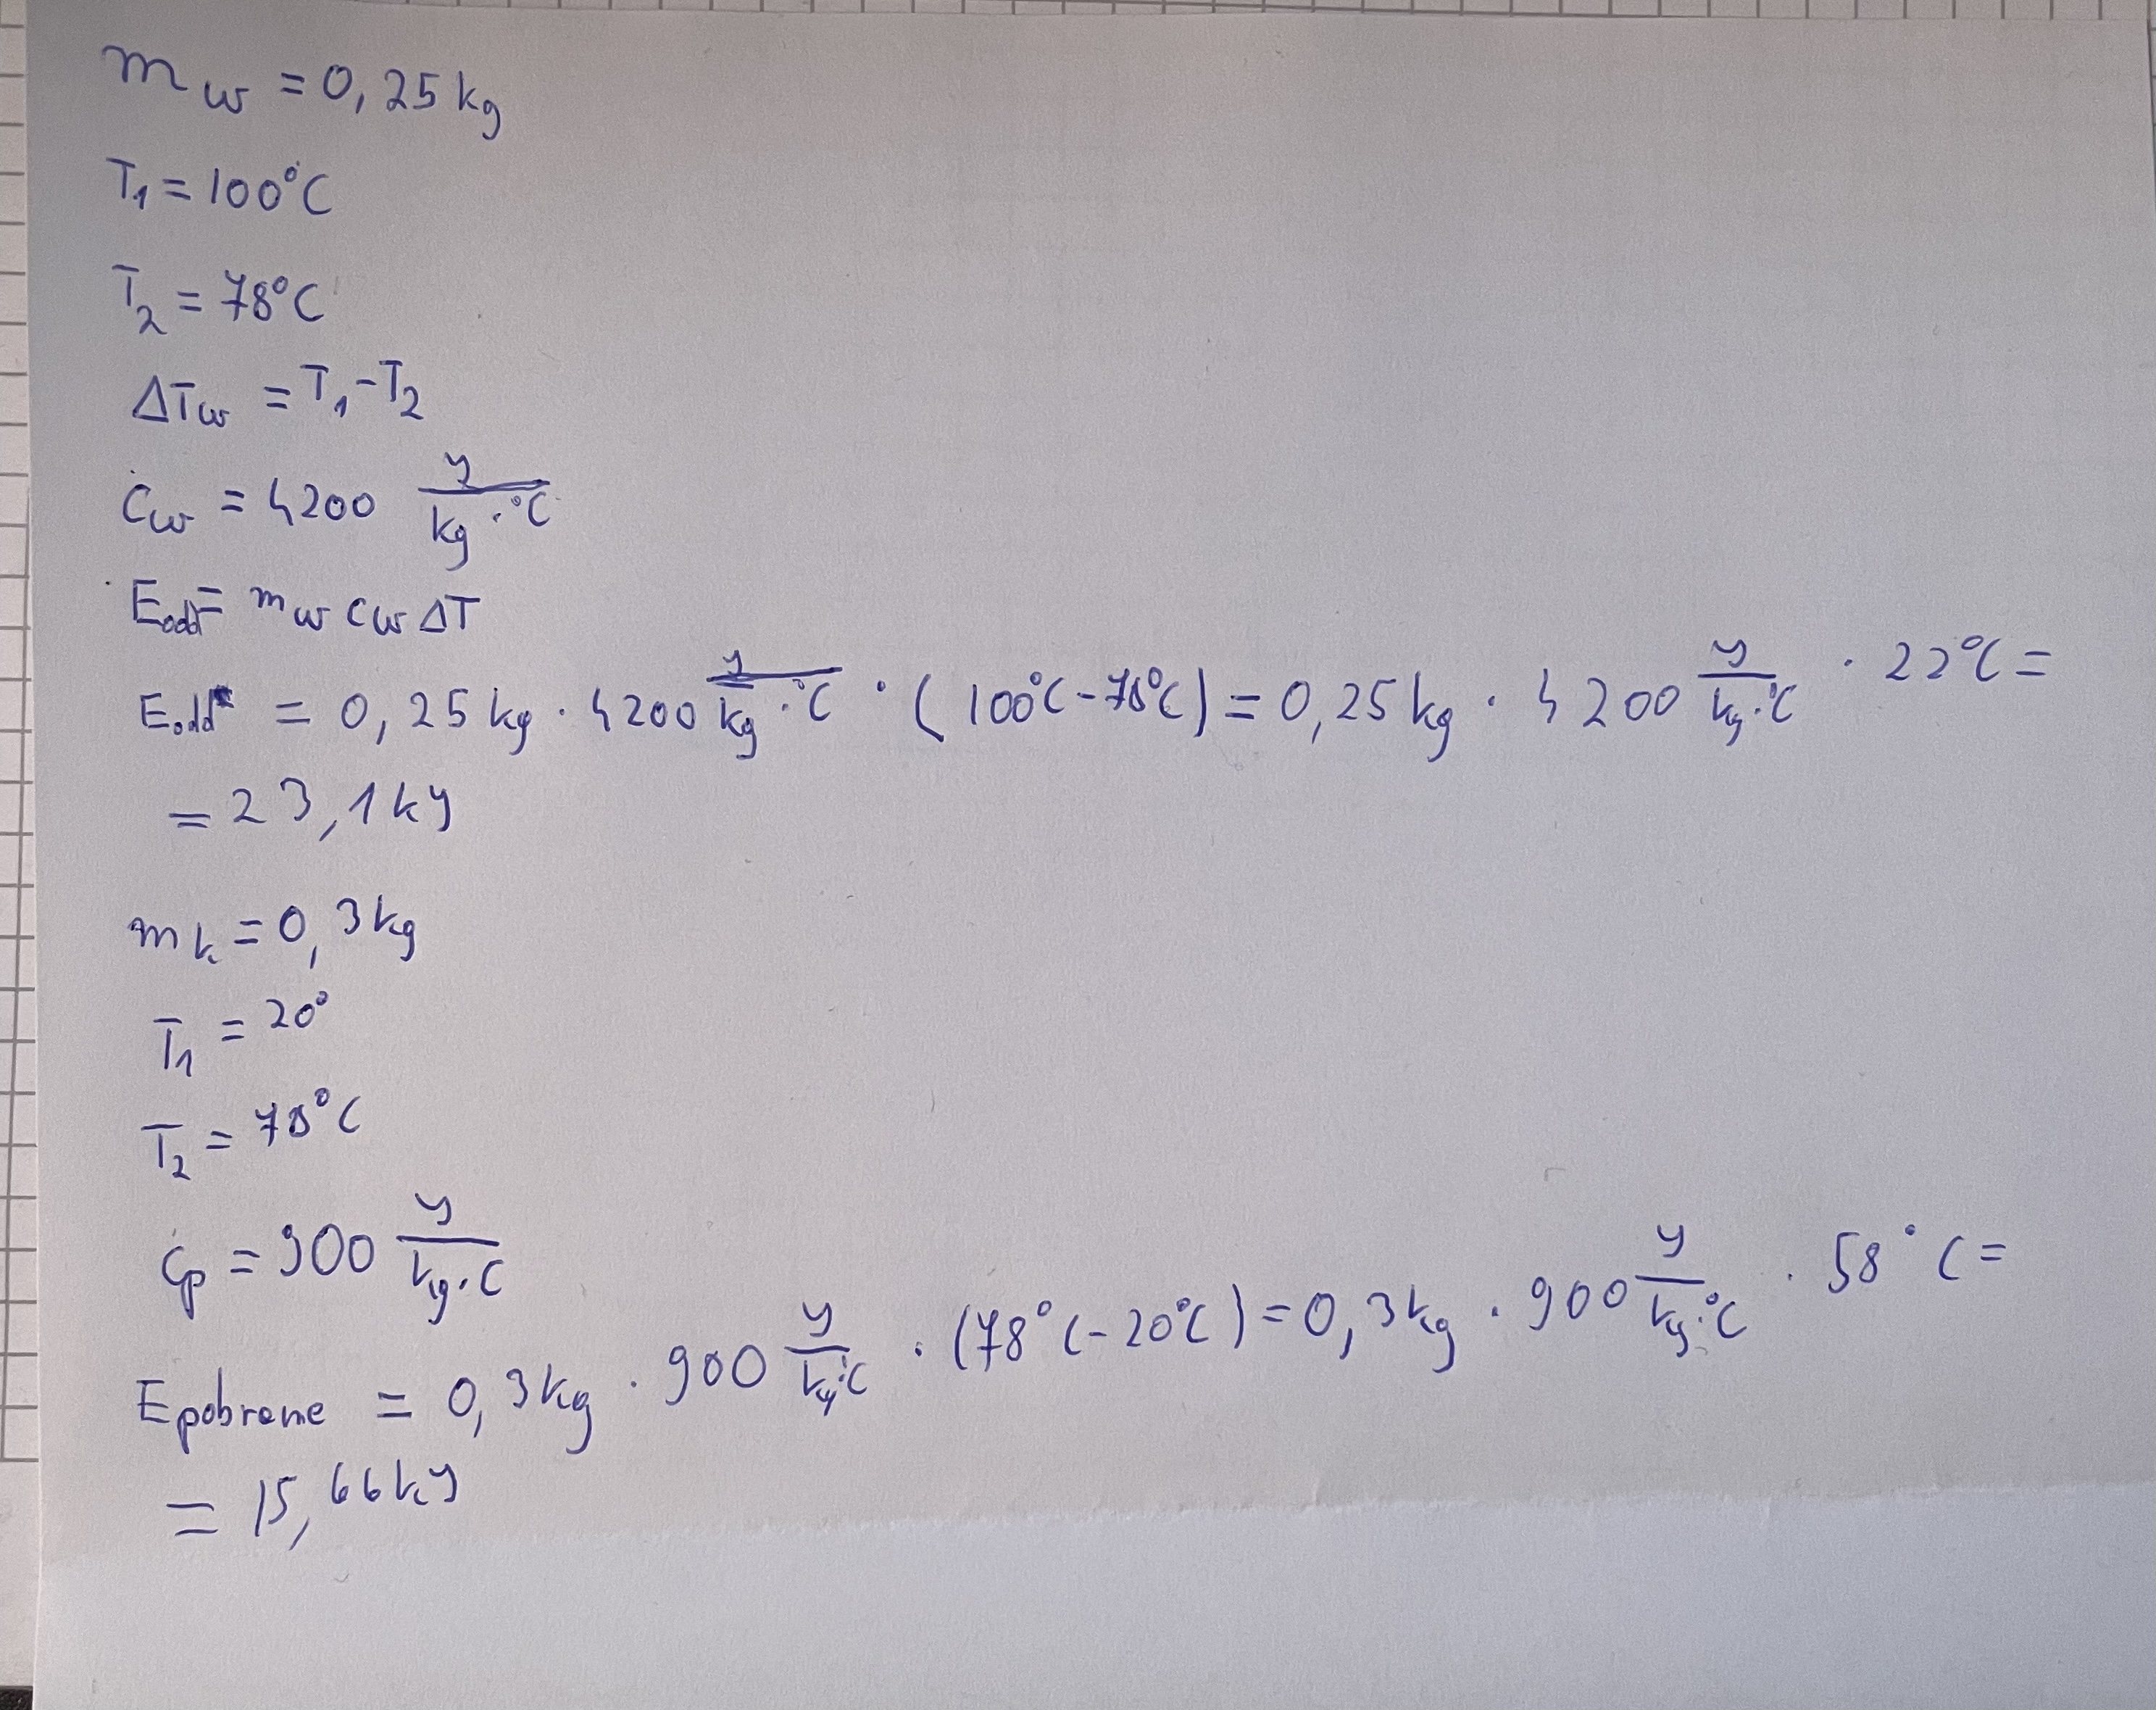 m_w = 0,25 kg
T₁ = 100°C
T₂ = 78°C
ΔT_w = T₁ - T₂
c_w = 4200 J/(kg · °C)
E_odd = m_w c_w ΔT
E_odd = 0,25 kg · 4200 J/(kg · °C) · (100°C - 78°C) = 0,25 kg · 4200 J/(kg · °C) · 22°C =
= 23,1 kJ
m_k = 0,3 kg
T₁ = 20°
T₂ = 78°C
c_p = 900 J/(kg · C)
E pobrane = 0,3 kg · 900 J/(kg · °C) · (78°C - 20°C) = 0,3 kg · 900 J/(kg · °C) · 58°C =
= 15,66 kJ